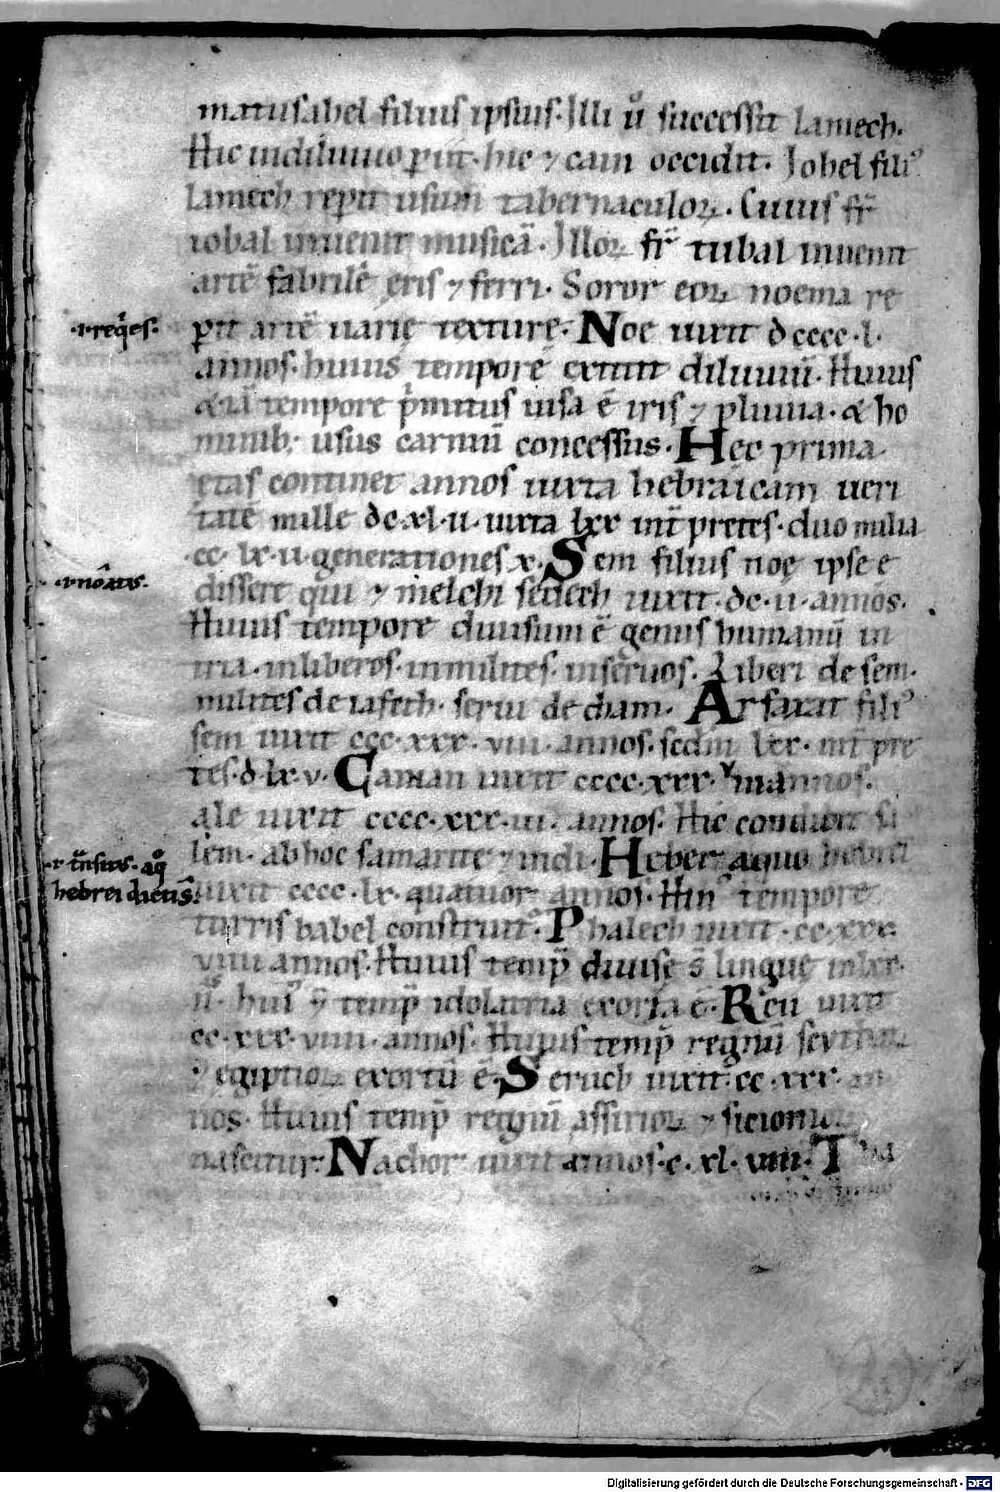 matusahel filius ipsius. Illi ů successit lamech.
Hic indiluuio ꝑiit. hic ⁊ cain occidit. Jobel fili꯹
Lamech repit usum tabernaculoꝝ. Cuius fr̄
iobal inuenit musicā. Illoꝝ fr̄ tubal inuenit
artē fabrilē ęris ⁊ ferri. Soror eoꝝ noema re
ꝑit artē uarię texturę. Noe uixit dcccc. l.
.i. req̇es.
annos. huius tempore extitit diluuiū. Huius
etiā tempore p̍mitus uisa ē iris ⁊ pluuia. & ho
minib; usus carniū concessus. Hec prima
etas continet annos iuxta hebraicam ueri
tatē mille dc. xl. ui. iuxta lxx int̄pretes. duo milia
.cc. lx. ii. generationes x. Sem filius noę ipse e
disseit qui ⁊ melchisedech uixit. dc. ii. annos.
Huius tempore diuisum ē genus humanū in
tria. inliberos. inmilites. inseruos. Liberi de sem.
milites de iafeth. serui de cham. Arfaxat fili꯹
sem uixit ccc. xxx. viii. annos. sedm̄ lxx. int̄pre
tes. d. lx. v. Cainan uixit cccc. xxx. annos.
ale uixit cccc. xxx. iii. annos. Hic condidit
lem. abhoc samarite ⁊ indi. Heber aquo hebrei
hebrei dicti s̄.
uixit cccc. lx. quatuor annos. Hui꯹ tempore
turris babel construit꯹. Phalech uixit. cc. xxx.
viiii annos. Huius temp̄ diuise s̄ linguę inlxx.
ii꯹. hui꯹ temp̄ idolatria exorta ē. Reu uixit
cc. xxx. viiii. annos. Huius temp̄ regnū scytharꝝ
⁊ egiptioꝝ exortū ē. Seruch uixit. cc. xxx. an
nos. Huius temp̄ regnū assirioꝝ ⁊ sicionioꝝ
nascitur. Nachor uixit annos. c. xl. viiii. Tha
Digitalisierung gefördert durch die Deutsche Forschungsgemeinschaft - DFG